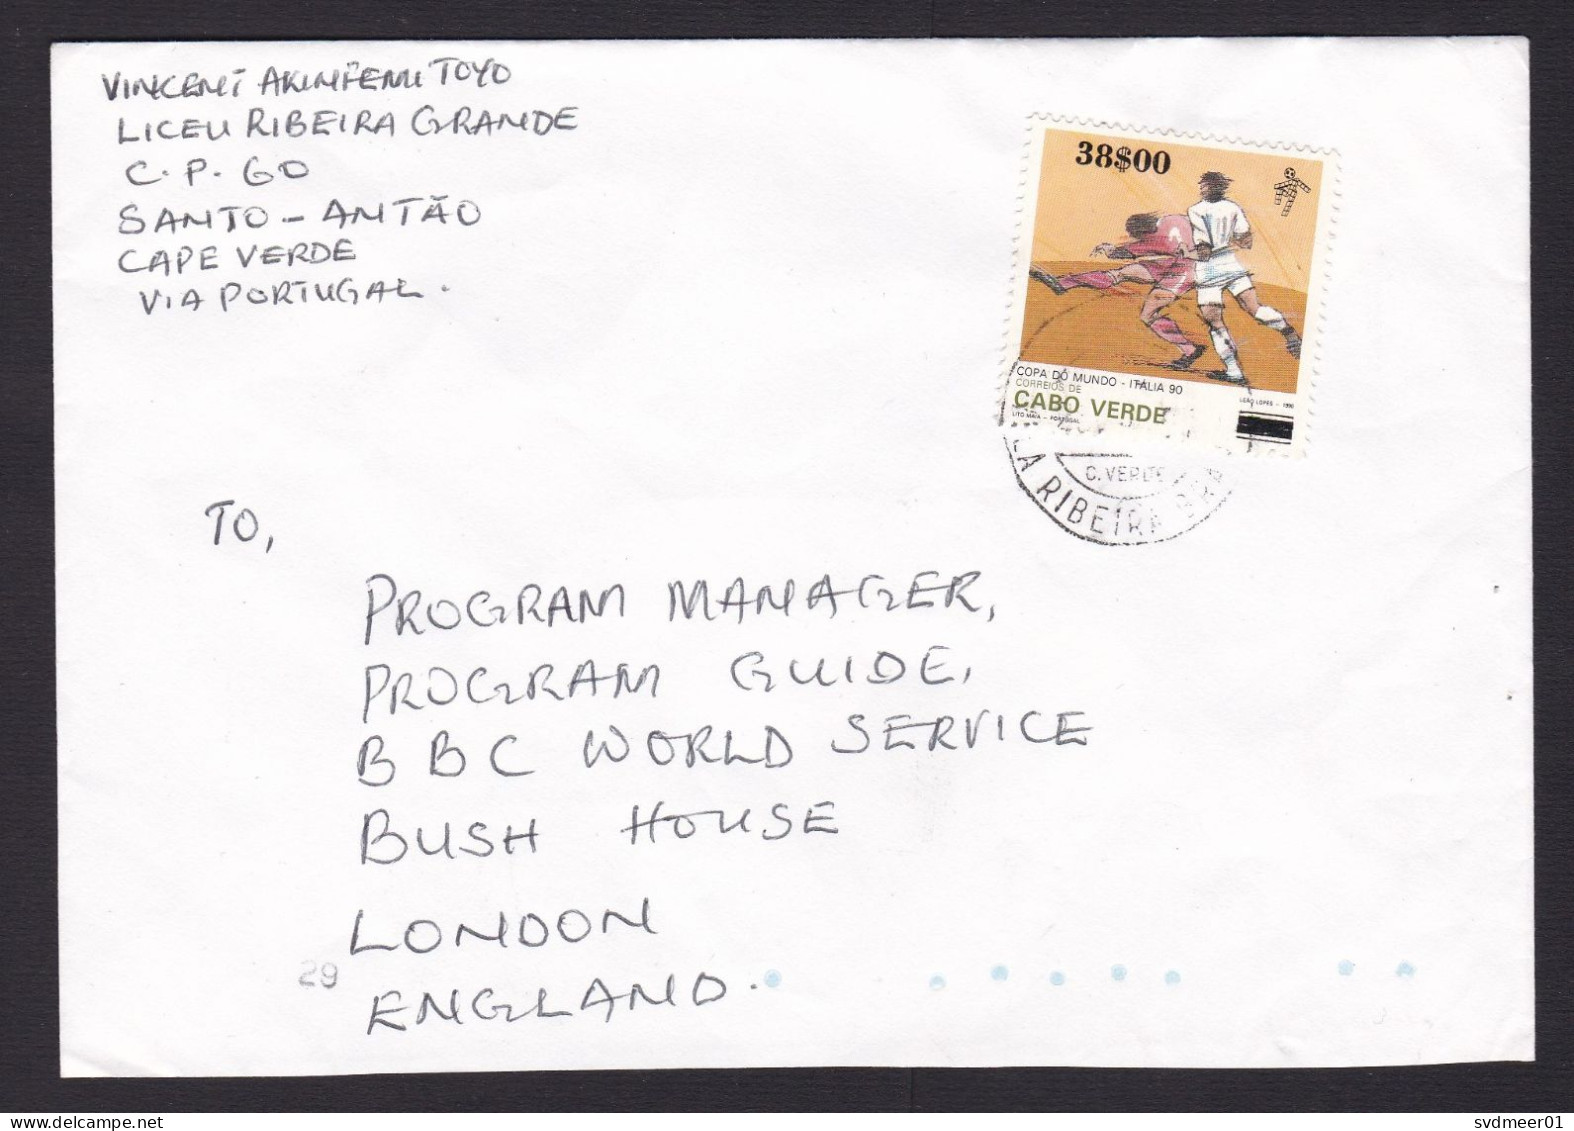 VINCENT AKINFEMI TOYO
LICEU RIBEIRA GRANDE
C. P. 60
SANTO - ANTÃO
CAPE VERDE
VIA PORTUGAL.
38$00
COPA DO MUNDO - ITÁLIA 90
CORREIOS DE
CABO VERDE
LITO MAIA - PORTUGAL
LEÃO LOPES - 1990
C. VERDE
LA RIBEIRA GRA
TO,
PROGRAM MANAGER,
PROGRAM GUIDE,
BBC WORLD SERVICE
BUSH HOUSE
LONDON
29
ENGLAND.
svdmeer01